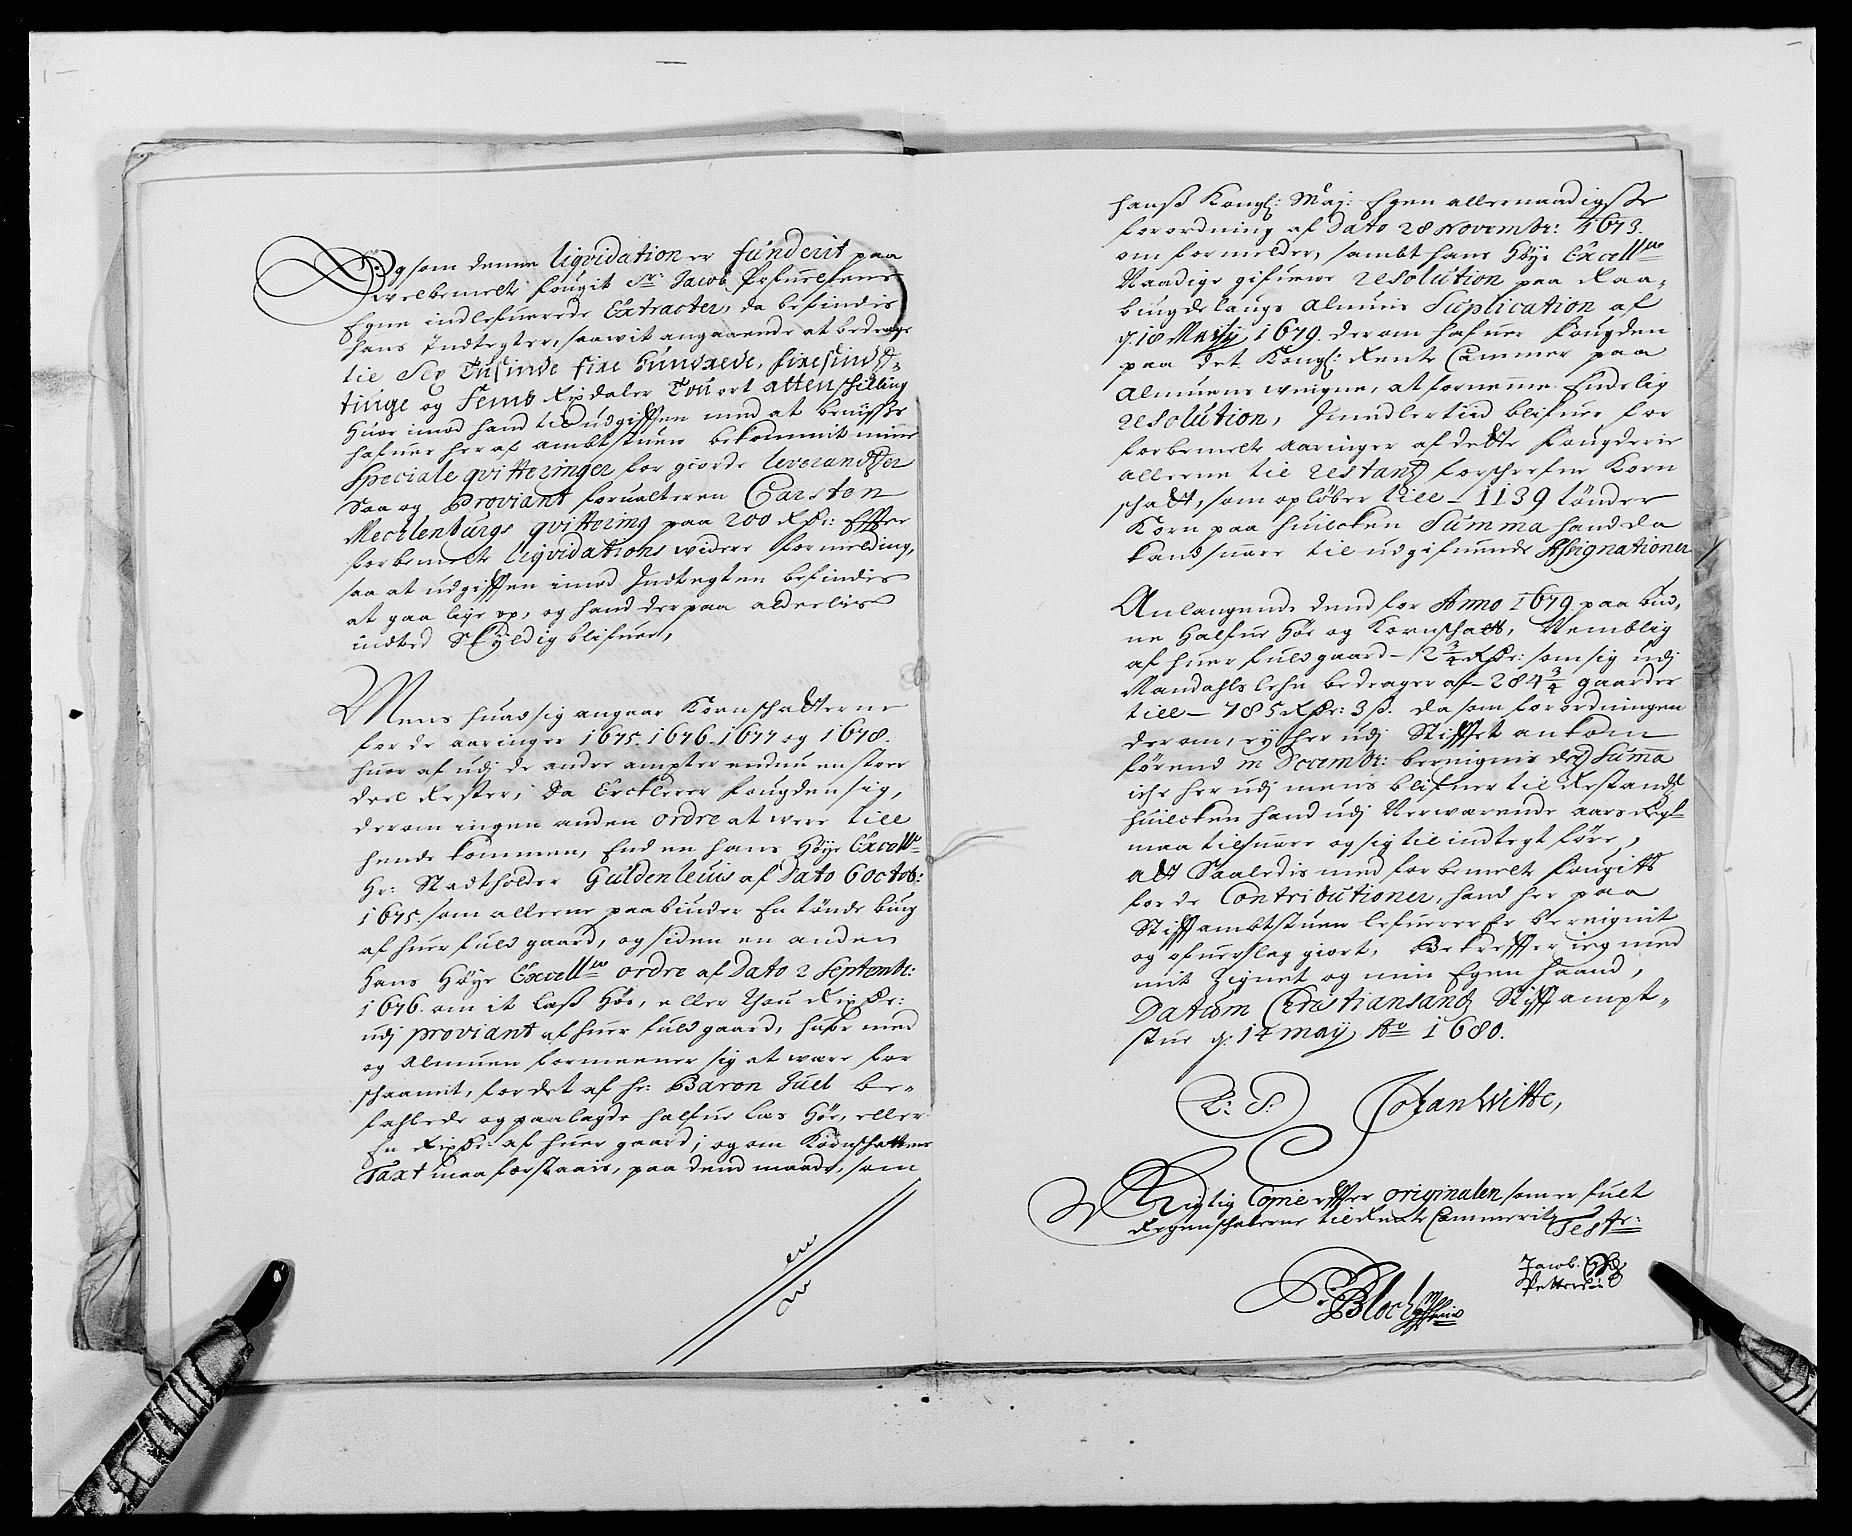 Og som denne liqvidation er funderit paa
welbemelt fougit Sr: Jacob
Egne indlefuerede Extracter, da befindis
hans Indtegter, saawit angaaende at bedrage
til Sex Tusinde fire Hundrede, firesinds-
tiuge og Femb Rixdaler Tou ort atten skilling
Huor imod hand til udgifften med at beuiisse
hafuer her af ambtstuen bekommit mine
Speciale qvitteringer for giorde leverandtzer
Saa og Proviant forualteren Carsten
Mechlenburgs qvittering paa 200 Rdr: Effter
forbemelt liqvidations widere formelding,
saa at udgifften imod Indtegten befindis
at gaa lige op, og hand derpaa alderlis
indted Skyldig blifuer,
Mens huad sig angaar Kornschatterne
for de aaringer 1675. 1676. 1677 og 1678.
huor af udj de andre ampter endnu en stoer
deel Rester, da Ercklerer fougden sig,
derom ingen anden ordre at were till
hende kommen, End en hans Høye Excellce
Hr: Stadtholder Güldenleuis af Dato 6 octob:
1675. som allerne paabiuder En tønde biug
af huer fuld gaard, og siden en anden
Hans Høye Excellces ordre af Dato 2 Septembr:
1676. om it lass Høe, eller Thou Rixdr:
udj proviant af huer fuld gaard, huor med
og Almuen formeener sig at være for
schaanit, for det af hr: Baron Juel be-
fahlede og paalagde halfue las Høe, eller
En Rixdr: af huer gaard; og om Kornschattens
Taxt maa forstaais, paa dend maade, som
hanss Kongl: Maj: Egen allernaadigste
forordning af Dato 28 Novembr: 1673.
om formelder, sambt hans Høye Excellces
Naadige gifuene resolution paa Raa-
biugdelaugs Almuis Suplication af
d. 18 Martij 1679. derom hafuer fougden
paa det Kongl: Rente Cammer paa
Almuens weigne, at fornemme Endelig
resolution, Imedlertid blifuer for
forbemelte aaringer af dette fougderie
allerne til restantz forschrefne Korn
schatt, som opløber till - 1139 tønder
Korn paa huilcken Summa hand da
kand suare til udgifuende Assignationer
Anlangende dend for Anno 1679. paa bud-
ne Halfue Høe og Kornschatt, Nemblig
af huer fuld gaard - 2 3/4 Rdr: som sig udj
Mandahls lehn bedrager af - 284 3/4 gaarder
till - 785 Rdr: 3 s. da som forordningen
derom, ey her udj Stifftet ankom
førend in Decembr: beregnis ded Suma
iche her udj mens blifuer til Restandtz
huilcken hand udj Nerwærende aars Regsk
maa tilsuare og sig til indtegt føre,
Alt Saaledis med forbemelte fougitz
forde Contributioner, hand her paa
Stifftambtstuen lefuerer Er beregnit
og ofuerslag giort, Bekreffter ieg med
mit Zignet og min Egen haand,
Datum Christiansandtz Stifft ampt-
stue d: 14 may Ao 1680.
L: S: Johan Witte,
Rigtig Copie effter originalen som er fult
Regenschaberne til Rente Cammerit, Test:
Jacob
Pettersen
PBloch